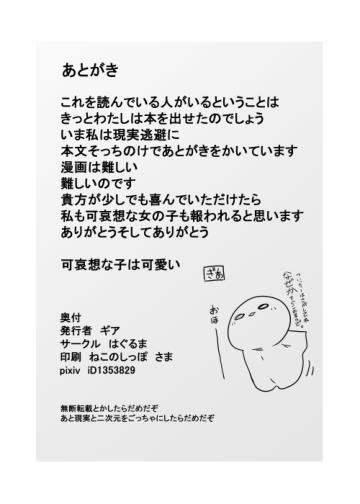 あとがき
これを読んでいる人がいるということは
きっとわたしは本を出せたのでしょう
いま私は現実逃避に
本文そっちのけであとがきをかいています
漫画は難しい
難しいのです
貴方が少しでも喜んでいただけたら
私も可哀想な女の子も報われると思います
ありがとうそしてありがとう
可哀想な子は可愛い
ぎあ
おほー
なぜか
奥付
発行者 ギア
サークル はぐるま
印刷 ねこのしっぽ さま
pixiv iD1353829
無断転載とかしたらだめだぞ
あと現実と二次元をごっちゃにしたらだめだぞ